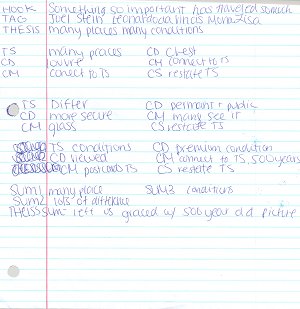 HOOK Something so important has traveled so much
TAG Joel Stein Leonardo da Vincis Mona Lisa
THESIS many places many conditions
TS many places CD Chest
CD louvre CM connect to TS
CM conect to TS CS restate TS
TS Differ CD permant + public
CD more secure CM many see it
CM glass CS restate TS
TS conditions CD premium condition
CD viewed CM connect to TS, 500 years
CM postcards TS CS restate TS
SUM1 many place SUM3 conditions
SUM2 lots of differ
THESIS SUM left us graced w/ 500 year old picture